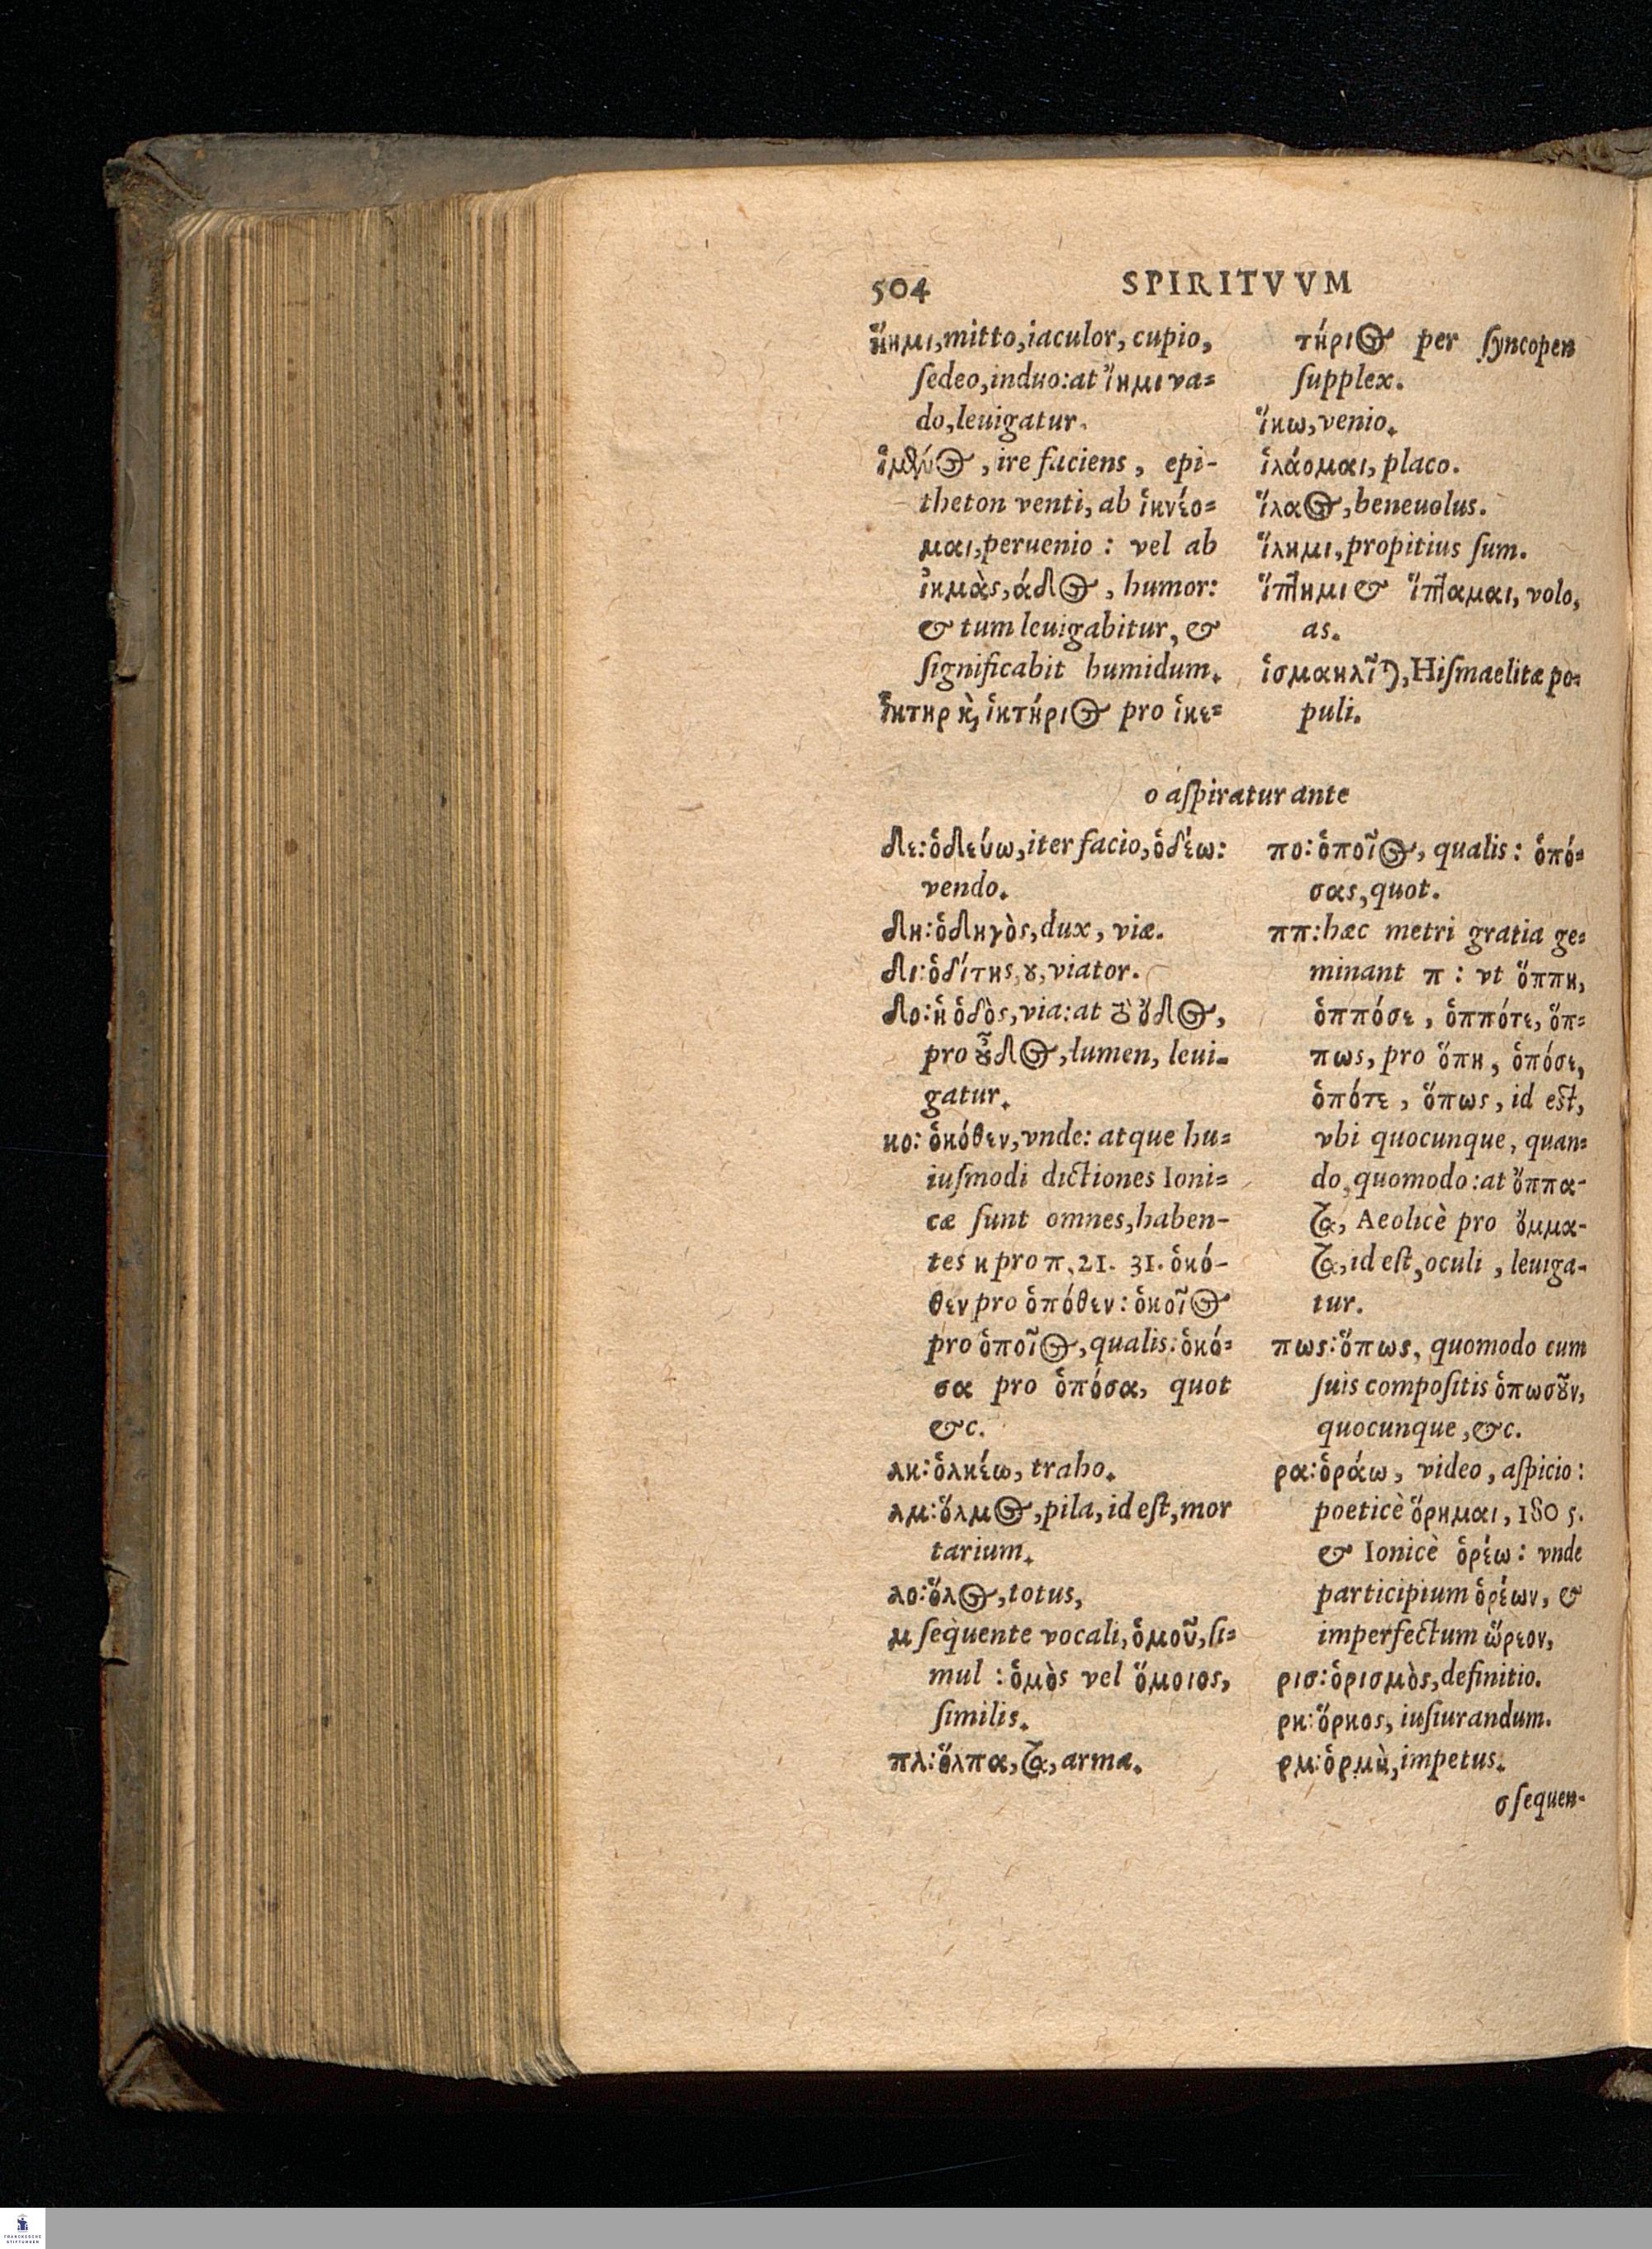 504 SPIRITVVM
ἵημι, mitto, iaculor, cupio,
ſedeo, induo: at ἴημι va=
do, leuigatur.
ἴκμϟυος, ire faciens, epi-
theton venti, ab ἱκνέο=
μαι, peruenio : vel ab
ἰκμὰς, άδος, humor:
& tum leuigabitur, &
ſignificabit humidum.
ἵκτηρ κὶ, ἱκτήριος pro ἱκε=
τήριος per ſyncopen
ſupplex.
ἵκω, venio.
ἱλάομαι, placo.
ἵλαος, beneuolus.
ἵλημι, propitius ſum.
ἵπτημι & ἵπταμαι, volo,
as.
ἱσμαηλῖται, Hiſmaelitæ po=
puli.
o aſpiratur ante
δε: ὁδεύω, iter facio, ὁδέω:
vendo.
δη: ὁδηγὸς, dux, viæ.
δι: ὁδίτης, ȣ, viator.
δο: ἡ ὁδὸς, via: at ὂδος,
pro ȣ̓͂δος, lumen, leui=
gatur.
κο: ὁκόθεν, vnde: atque hu=
iuſmodi dictiones Ioni=
cæ ſunt omnes, haben-
tes κ pro π. 21. 31. ὁκό-
θεν pro ὁπόθεν: ὁκοῖος
pro ὁποῖος, qualis: ὁκό=
σα pro ὁπόσα, quot
&c.
λκ: ὁλκέω, traho.
λμ: ὅλμος, pila, id eſt, mor
tarium.
λο: ὅλος, totus,
μ ſequente vocali, ὁμοῦ, ſi=
mul : ὁμὸς vel ὅμοιος,
ſimilis.
πλ: ὅλπα, τα, arma.
πο: ὁποῖος, qualis: ὁπό=
σας, quot.
ππ: hæc metri gratia ge=
minant π : vt ὅππη,
ὁππόσε, ὁππότε, ὅπ=
πως, pro ὅπη, ὁπόσε,
ὁπότε, ὅπως, id eſt,
vbi quocunque, quan=
do, quomodo: at ὄππα-
τα, Aeolicè pro ὄμμα-
τα, id eſt, oculi, leuiga-
tur.
πως: ὅπως, quomodo cum
ſuis compoſitis ὁπωσȣ͂ν,
quocunque, &c.
ρα: ὁράω, video, aſpicio:
poeticè ὅρημαι, 180 5.
& Ionicè ὁρέω: vnde
participium ὁρέων, &
imperfectum ὥρεον,
ρισ: ὁρισμὸς, definitio.
ρκ: ὅρκος, iuſiurandum.
ρμ: ὁρμὴ, impetus.
σ ſequen-
FRANCKESCHE
STIFTUNGEN